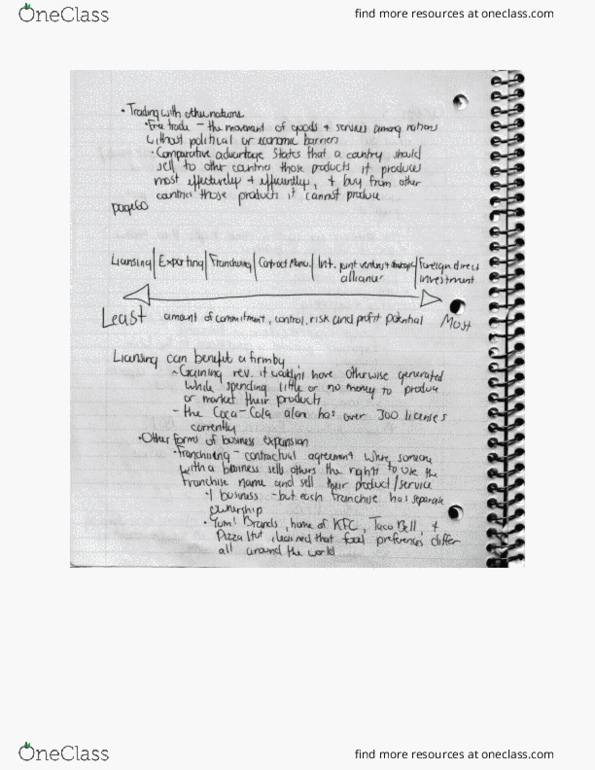 OneClass
find more resources at oneclass.com
• Trading with other nations
• Free trade - the movement of goods + services among nations
without political or economic barriers
• Comparative advantage states that a country should
sell to other countries those products it produces
most effectively + efficiently, + buy from other
countries those products it cannot produce
page 60
Licensing | Exporting | Franchising | Contract Manu. | Int. joint venture + strategic | Foreign direct
alliances investment
Least amount of commitment, control, risk and profit potential Most
Licensing can benefit a firm by
- Gaining rev. it wouldn't have otherwise generated
while spending little or no money to produce
or market their products
- the Coca-Cola alone has over 300 licenses
currently
• Other forms of business expansion
• Franchising - contractual agreement where someone
with a business sells others the rights to use the
franchise name and sell their product/service
• 1 business - but each franchise has separate
ownership
• Yum! Brands, home of KFC, Taco Bell, +
Pizza Hut learned that food preferences differ
all around the world
OneClass
find more resources at oneclass.com